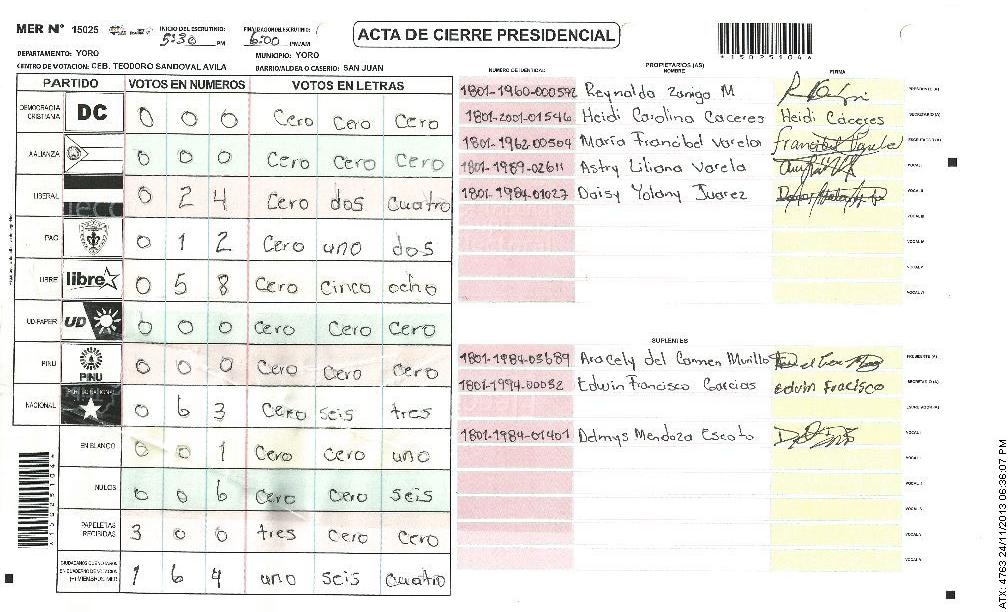 MER N° 15025
INICIO DEL ESCRUTINIO: 5:30 PM
FINALIZACION DEL ESCRUTINIO: 6:00 PM/AM
ACTA DE CIERRE PRESIDENCIAL
DEPARTAMENTO: YORO
MUNICIPIO: YORO
CENTRO DE VOTACION: CEB. TEODORO SANDOVAL AVILA
BARRIO/ALDEA O CASERIO: SAN JUAN
PARTIDO VOTOS EN NUMEROS VOTOS EN LETRAS
DEMOCRACIA CRISTIANA DC 0 0 0 Cero Cero Cero
AALIANZA 0 0 0 Cero Cero Cero
LIBERAL 0 2 4 Cero dos cuatro
PAC 0 1 2 Cero uno dos
LIBRE libre 0 5 8 Cero cinco ocho
UD-FAPER UD 0 0 0 Cero Cero Cero
PINU PINU 0 0 0 Cero Cero Cero
NACIONAL 0 6 3 Cero seis tres
EN BLANCO 0 0 1 Cero Cero uno
NULOS 0 0 6 Cero Cero seis
PAPELETAS RECIBIDAS 3 0 0 tres cero cero
1 6 4 uno seis cuatro
PROPIETARIOS (AS)
NUMERO DE IDENTIDAD NOMBRE FIRMA
1801-1960-000592 Reynaldo Zuniga M PRESIDENTE (A)
1801-2001-01546 Heidi Carolina Caceres Heidi Caceres SECRETARIO (A)
1801-1962-00504 Maria Francibel Varela Francibel Varela ESCRUTADOR (A)
1801-1989-02611 Astry Liliana Varela VOCAL I
1801-1984-01027 Daisy Yolany Juarez VOCAL II
VOCAL III
VOCAL IV
VOCAL V
VOCAL VI
SUPLENTES
1801-1984-03689 Aracely del Carmen Murillo PRESIDENTE (A)
1801-1994-00032 Edwin Francisco Garcias edwin Fracisco SECRETARIO (A)
ESCRUTADOR (A)
1801-1984-01401 Delmys Mendoza Escoto VOCAL I
ATX: 4763 24/11/2013 06:36:07 PM